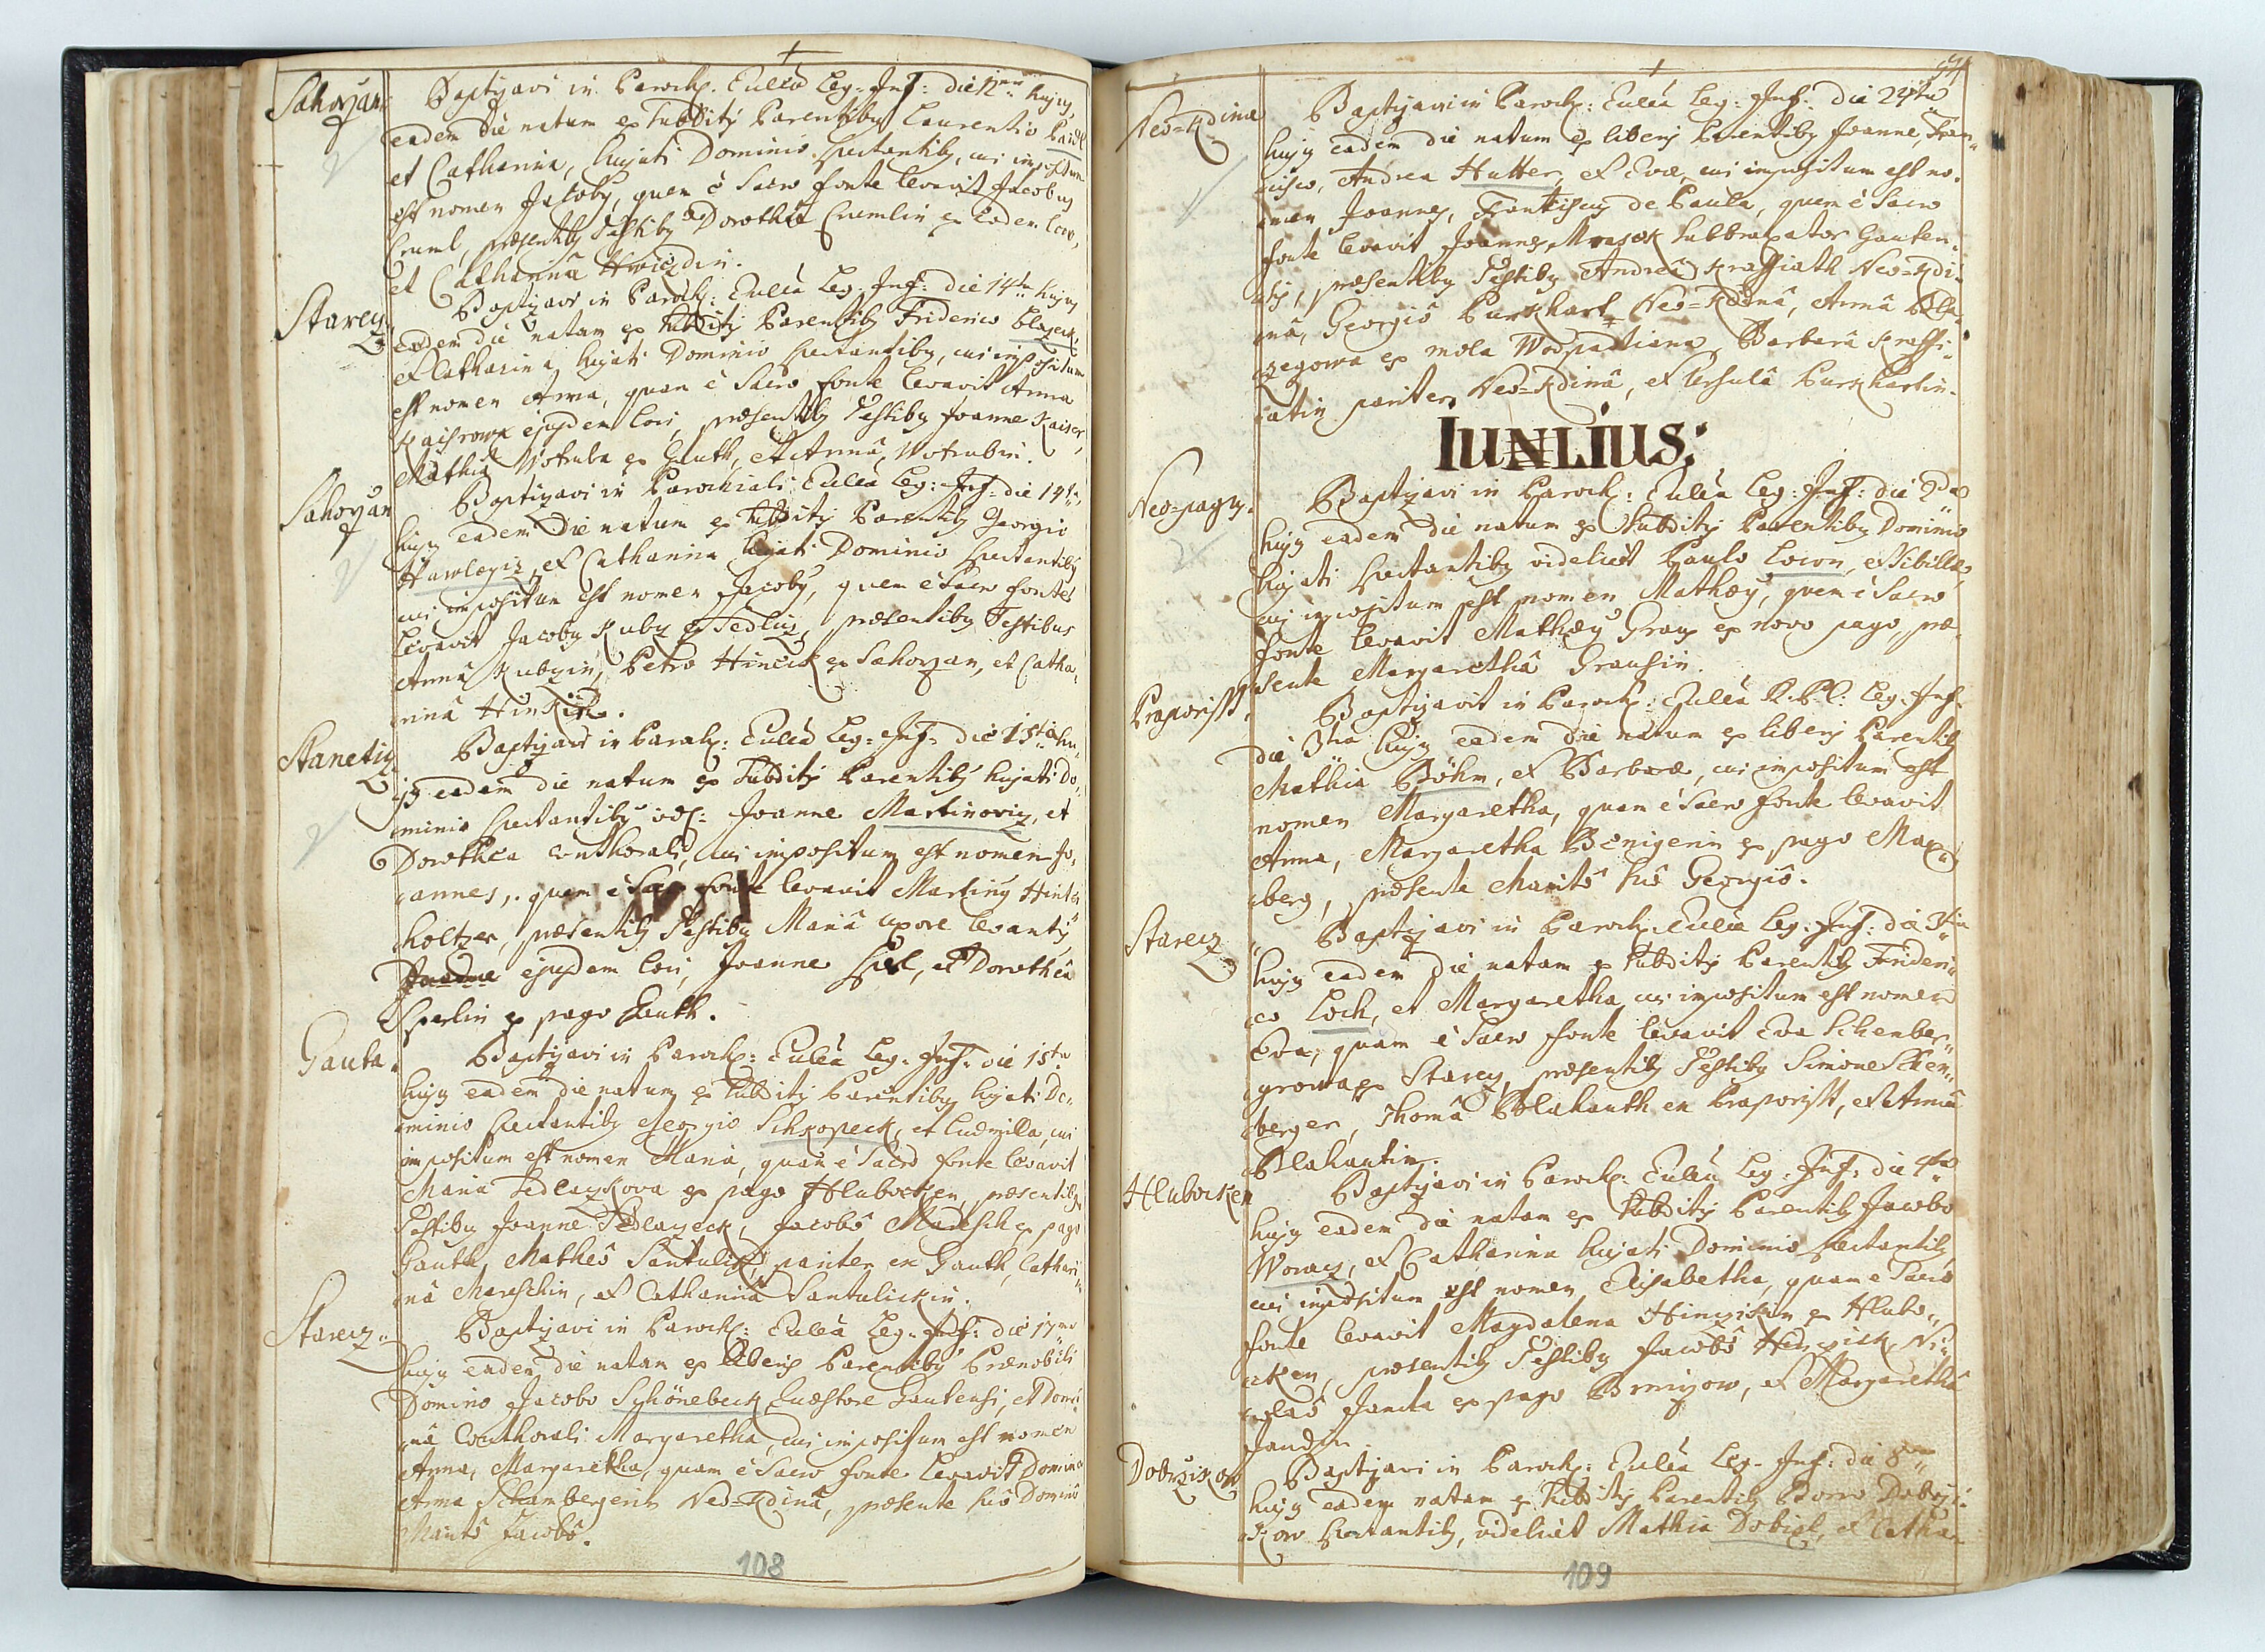 Sahorzan
Baptizavi in Paroch: Eccl̃ia Leg: Inf: die 12ma hujus
eadem die natum ex subditis Parentibus Laurentio
et Catharina, hujati Dominio spectantibus, cui impositum
est nomen Jacobus, quem è Sacro fonte levavit Jacobus
Cruml, præsentibus Testibus Dorothea Crumlin ex eodem loco,
et Catharinâ
Starecz
Baptizavi in Paroch: Eccl̃ia Leg: Inf: die 14ta hujus
eadem die natam ex subditis Parentibus Friderico Blazeck
et Catharina hujati Dominio spectantibus, cui impositum
est nomen Anna, quam è Sacro fonte levavit Anna
Kaisrowa ejusdem loci, præsentibus Testibus Joanne Kaiser,
Mathia Wotruba ex Gauth, et Annâ Wotrubin.
Sahorzan
Baptizavi in Parochiali Eccl̃ia Leg: Inf: die 14ta
hujus eadem die natum ex subditis Parentibus Georgio
et Catharina hujati Dominio spectantibus
cui impositum est nomen Jacobus, quem è Sacro fonte
levavit Jacobus Kubz ex Sedliz, præsentibus Testibus
Annâ Kubzin, Petro Hinčik ex Sahorzan, et Catha-
rinâ
Stanetiz
Baptizavi in Paroch: Eccl̃ia Leg: Inf: die 15ta hu-
jus eadem die natum ex subditis Parentibus hujati Do-
minio spectantibus vidl: Joanne Martinoviz, et
Dorothea conthorali, cui impositum est nomen Jo-
annes, quem è Sacro fonte levavit Martinus Hinter
holtzer, præsentibus Testibus Mariâ uxore levantis
ejusdem loci, Joanne et Dorotheâ
ex pago Gauth.
Gauta
Baptizavi in Paroch: Eccl̃ia Leg: Inf: die 15ta
hujus eadem die natam ex subditis Parentibus hujati Do-
minio spectantibus Georgio Schkopeck, et Ludmilla, cui
impositum est nomen Maria, quam è Sacro fonte levavit
Maria Sedlazkova ex pago Hluboken, præsentibus
Testibus Joanne Sedlazeck, Jacobô Maresch ex pago
Gauth, Matheô pariter ex Gauth, Cathari-
nâ Mareschin, et Catharinâ Santulickin.
Starecz
Baptizavi in Paroch: Eccl̃ia Leg: Inf: die 17ma
hujus eadem die natam ex liberis Parentibus Prænobili
Domino Jacobo Schönebeck Quæstore Gautensi, et Domi-
nâ Conthorali Margaretha, cui impositum est nomen
Anna, Margaretha, quam è Sacro fonte levavit Domina
Anna Schambergerin Neo=Kdinâ, præsente suô Dominô
Maritô Jacobô.
108
Neo=Kdinæ
Baptizavi in Paroch: Eccl̃ia Leg: Inf: die 24ta
hujus eadem die natum ex liberis Parentibus Joanne, Fran-
cisco, Andrea Hutter, et Eva, cui impositum est no-
men Joannes, Frantiscus de Paula, quem è Sacro
fonte levavit Joannes Mrasek Subbraxator Gauten-
sis, præsentibus Testibus Andreâ Neo=Kdi-
nâ, Georgiô Burkhart Neo=Kdinâ, Annâ
ex mola Barbarâ
pariter Neo=Kdinâ, et Ursulâ Burkhartin.
IUNLIUS:
Neo=pagus.
Baptizavi in Paroch: Eccl̃ia Leg: Inf: die 2da
hujus eadem die natum ex subditis Parentibus Dominio
hujati spectantibus videlicet Paulo et Sibilla,
cui impositum est nomen Mathæus, quem è Sacro
fonte levavit Mathæus Graus ex novo pago, præ-
sente Margarethâ Grausin.
Praporisst.
Baptizavit in Paroch: Eccl̃ia Leg: Inf:
die 3tia hujus eadem die natam ex liberis Parentibus
Mathia Böhm, et Barbara, cui impositum est
nomen Margaretha, quam è Sacro fonte levavit
Anna, Margaretha ex pago Max-
berg, præsente Maritô suô Georgiô.
Starecz
Baptizavi in Paroch: Eccl̃ia Leg: Inf: die 3tia
hujus eadem die natam ex subditis Parentibus Frideri-
co Loch, et Margaretha, cui impositum est nomen
Eva, quam è Sacro fonte levavit Eva Schenber-
growa ex Starez, præsentibus Testibus Simone Schen-
berger, Thomâ Blahauth ex Praporisst, et Annâ
Blahautin.
Hlubocken
Baptizavi in Paroch: Eccl̃ia Leg: Inf: die 4ta
hujus eadem die natam ex subditis Parentibus Jacobo
Woracz, et Catharina hujati Dominio spectantibus
cui impositum est nomen Elisabetha, quam è Sacro
fonte levavit Magdalena ex Hlubo-
cken, præsentibus Testibus Jacobô Ni-
colaô Janda ex pago et Margarethâ
Jandin
Dobrzikow
Baptizavi in Paroch: Eccl̃ia Leg: Inf: die 8va
hujus eadem natam ex subditis Parentibus Dobrzi-
kow spectantibus, videlicet Mathia et Catha-
109